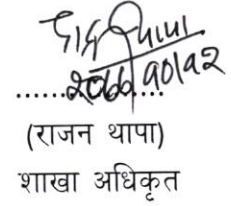 २०७७।१०।१२
(राजन थापा)
शाखा अधिकृत